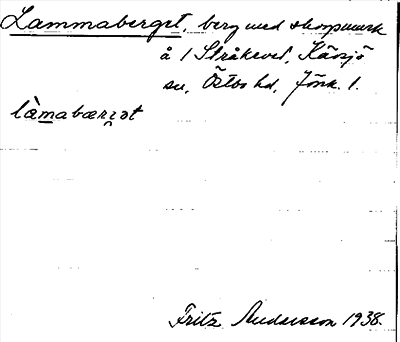 Lammaberget, berg med skogsmark
å 1 Stråkeved, Kävsjö
sn, Östbo hd, Jönk. l.
làmabærgət
Fritz Andersson 1938.